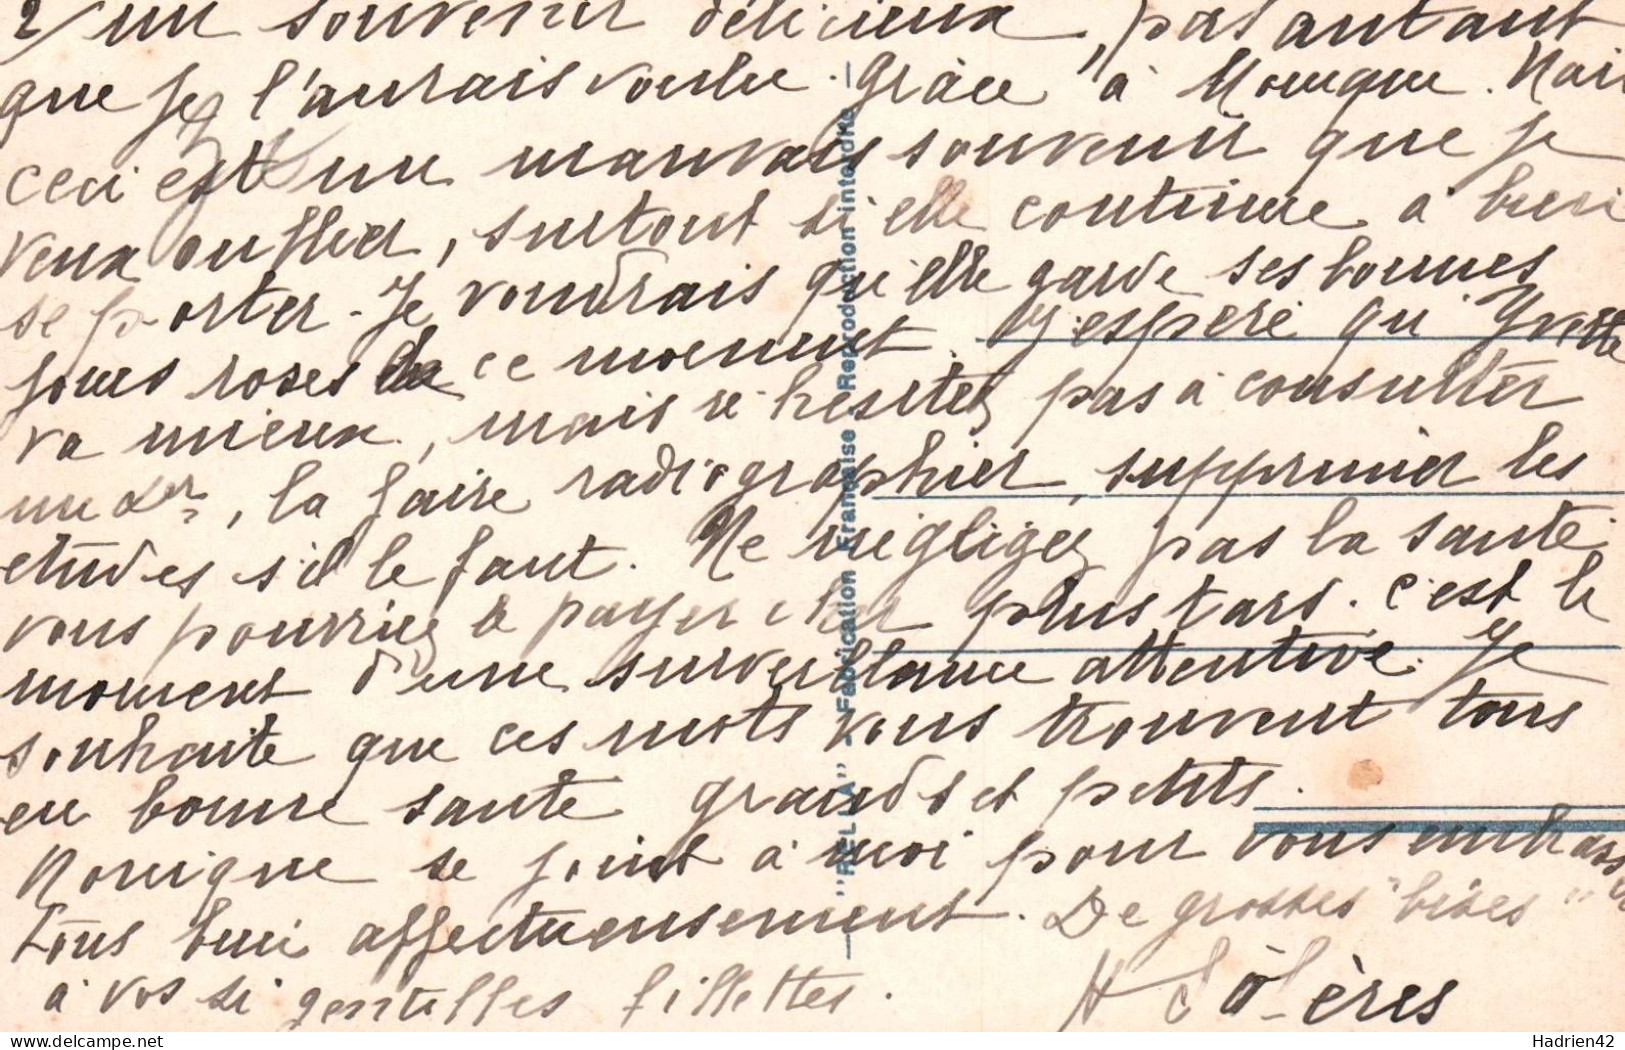 2/ un souvenir délicieux, pas autant
que je l'aurais voulu. Grâce à Monique. Mais
ceci est un mauvais souvenir que je
veux oublier, surtout si elle continue à bien
se porter. Je voudrais qu'elle garde ses bonnes
joues roses de ce moment. J'espère qu'Yvette
va mieux, mais n'hésitez pas à consulter
un Dr, la faire radiographier, supprimer les
études s'il le faut. Ne négligez pas la santé
vous pourriez le payer cher plus tard. C'est le
moment d'une surveillance attentive. Je
souhaite que ces mots vous trouvent tous
en bonne santé grands et petits.
Monique se joint à moi pour vous embrasser
tous bien affectueusement. De grosses "bises"
à vos si gentilles fillettes.
"RELLA" - Fabrication Française - Reproduction interdite
Hadrien42